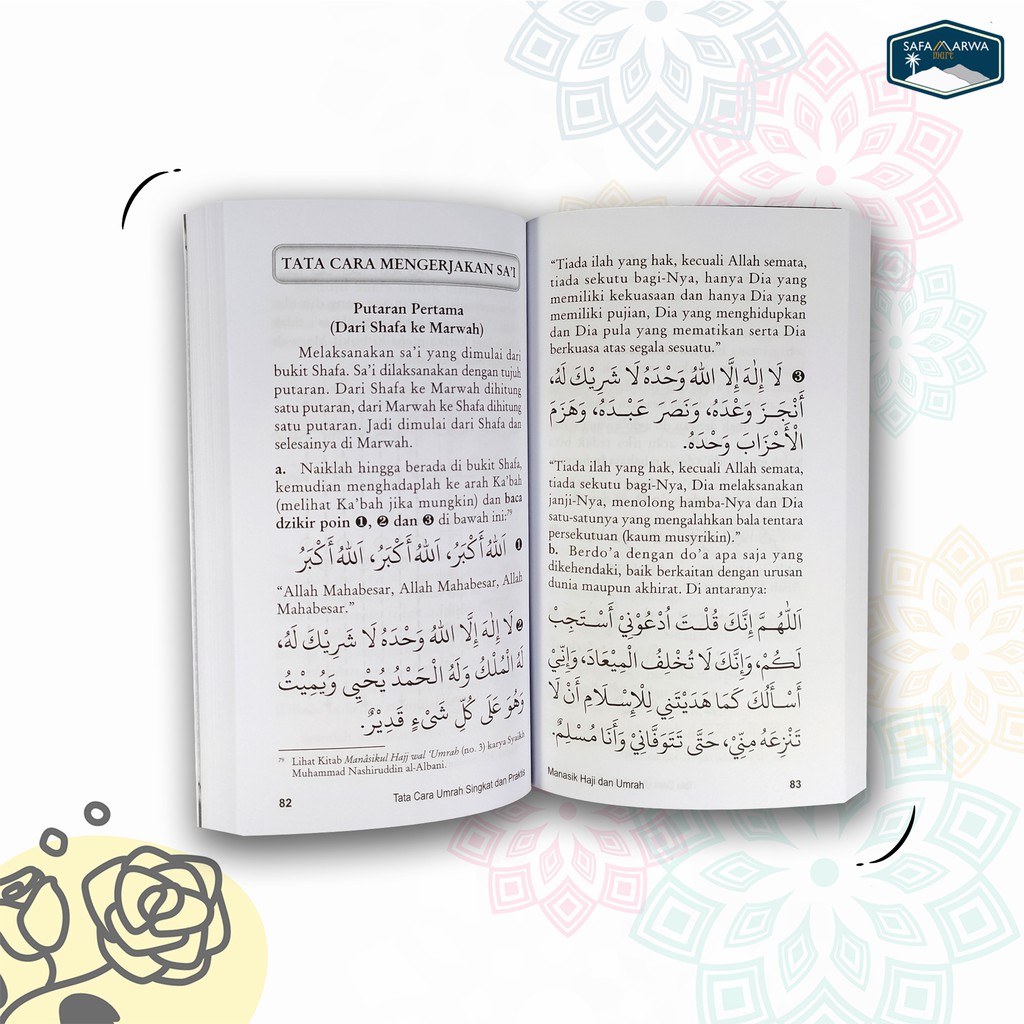 SAFA MARWA
mart
TATA CARA MENGERJAKAN SA'I
Putaran Pertama
(Dari Shafa ke Marwah)
Melaksanakan sa'i yang dimulai dari
bukit Shafa. Sa'i dilaksanakan dengan tujuh
putaran. Dari Shafa ke Marwah dihitung
satu putaran, dari Marwah ke Shafa dihitung
satu putaran. Jadi dimulai dari Shafa dan
selesainya di Marwah.
a. Naiklah hingga berada di bukit Shafa,
kemudian menghadaplah ke arah Ka'bah
(melihat Ka'bah jika mungkin) dan baca
dzikir poin ❶, ❷ dan ❸ di bawah ini:⁷⁹
❶ اَللهُ أَكْبَرُ، اَللهُ أَكْبَرُ، اَللهُ أَكْبَرُ
“Allah Mahabesar, Allah Mahabesar, Allah
Mahabesar.”
❷ لَا إِلٰهَ إِلَّا اللهُ وَحْدَهُ لَا شَرِيْكَ لَهُ،
لَهُ الْمُلْكُ وَلَهُ الْحَمْدُ يُحْيِي وَيُمِيْتُ
وَهُوَ عَلَى كُلِّ شَيْءٍ قَدِيْرٌ.
⁷⁹ Lihat Kitab Manâsikul Hajj wal 'Umrah (no. 3) karya Syaikh
Muhammad Nashiruddin al-Albani.
82 Tata Cara Umrah Singkat dan Praktis
“Tiada ilah yang hak, kecuali Allah semata,
tiada sekutu bagi-Nya, hanya Dia yang
memiliki kekuasaan dan hanya Dia yang
memiliki pujian, Dia yang menghidupkan
dan Dia pula yang mematikan serta Dia
berkuasa atas segala sesuatu.”
❸ لَا إِلٰهَ إِلَّا اللهُ وَحْدَهُ لَا شَرِيْكَ لَهُ،
أَنْجَزَ وَعْدَهُ، وَنَصَرَ عَبْدَهُ، وَهَزَمَ
الْأَحْزَابَ وَحْدَهُ.
“Tiada ilah yang hak, kecuali Allah semata,
tiada sekutu bagi-Nya, Dia melaksanakan
janji-Nya, menolong hamba-Nya dan Dia
satu-satunya yang mengalahkan bala tentara
persekutuan (kaum musyrikin).”
b. Berdo'a dengan do'a apa saja yang
dikehendaki, baik berkaitan dengan urusan
dunia maupun akhirat. Di antaranya:
اَللّٰهُمَّ إِنَّكَ قُلْتَ اُدْعُوْنِيْ أَسْتَجِبْ
لَكُمْ، وَإِنَّكَ لَا تُخْلِفُ الْمِيْعَادَ، وَإِنِّيْ
أَسْأَلُكَ كَمَا هَدَيْتَنِي لِلْإِسْلَامِ أَنْ لَا
تَنْزِعَهُ مِنِّيْ، حَتَّى تَتَوَفَّانِيْ وَأَنَا مُسْلِمٌ.
Manasik Haji dan Umrah 83